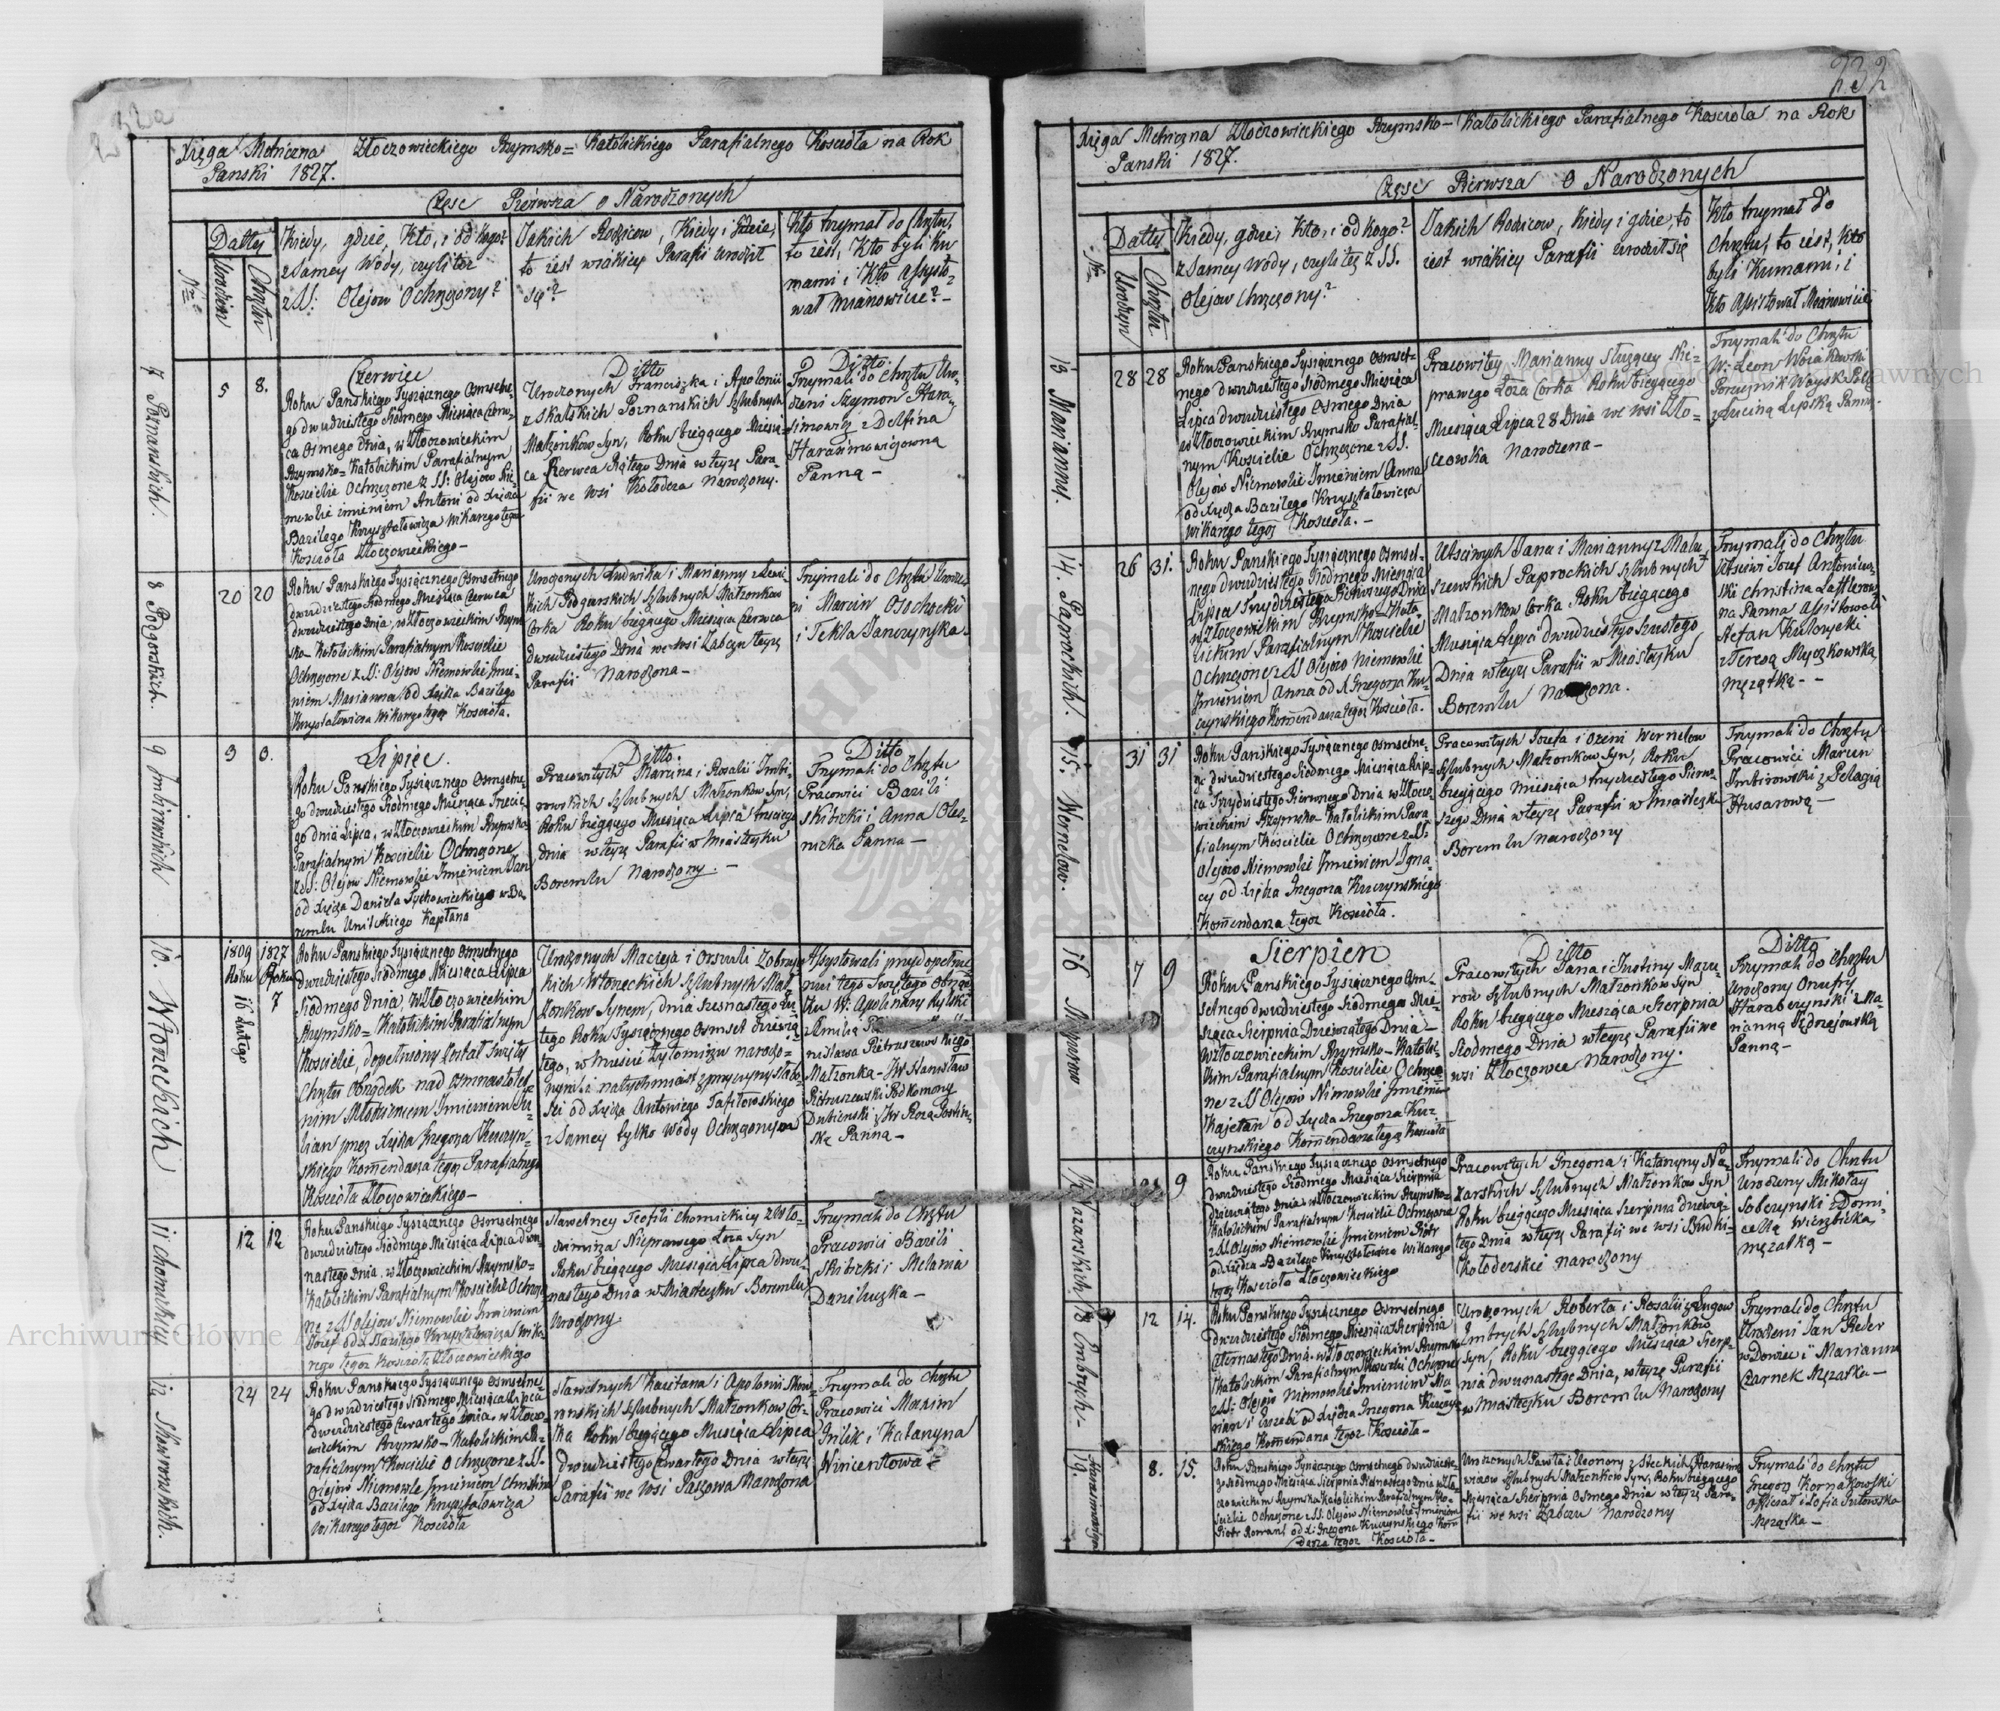 232
Xięga Metriczna Złoczowieckiego Rzymsko=Katolickiego Parafialnego Kosciola na Rok
Panski 1827.
Częsc Pierwsza o Narodzonych
Nro
Datty
Urodzin
Chrztu
Kiedy, gdzie, Kto, i od kogo?
z Samey Wody, czyli też
z SS: Olejow Ochrzczony?
Jakich Rodzicow, Kiedy i Gdzie,
to iest w iakiey Parafii urodził
się?
Kto trzymał do Chrztu,
to iest, Kto byli Ku-
mami i Kto assysto-
wał Mianowicie?-
7 Poznanskich.
5
8.
Czerwiec
Roku Panskiego Tysiącznego Osmsetne-
go dwudziestego Siodmego Miesiąca Czerw-
ca Osmego Dnia, w Złoczowieckim
Rzymsko=Katolickim Parafialnym
Kosciele Ochrzczone z SS: Olejow Nie-
mowle imieniem Antoni od Xiędza
Bazilego Krzyształowicza Wikarego tegoz
Kosciola Złoczowieckiego-
Ditto
Urodzonych Franciszka i Apolonii
z Skalskich Poznanskich Szlubnych
Małżonkow Syn, Roku bieżącego Miesią-
ca Czerwca Piątego Dnia w teyże Para-
fii we Wsi Kołodeza Narodzony.
Ditto
Trzymali do Chrztu Uro-
dzeni Szymon Hara-
simowicz z Delfina
Harasimowiczowną
Panną-
8 Pozgorskich.
20
20
Roku Panskiego Tysiącznego Osmsetnego
dwudziestego Siodmego Miesiąca Czerwca
dwudziestego Dnia, w Złoczowieckim Rzym-
sko-Katolickim Parafialnym Kosciele
Ochrzczone z SS: Olejow Niemowle Imie-
niem Marianna od Xiędza Bazilego
Krzyształowicza Wikarego tegoz Kosciola.
Corka Roku bieżącego Miesiąca Czerwca
dwudziestego Dnia we wsi Łabczu teyże
Parafii Narodzona-
Trzymali do Chrztu Urodze-
ni Marcin Osochocki
i Tekla Janczynska-
9 Imbirowskich
3
3.
Lipiec.
Roku Panskiego Tysiącznego Osmsetne-
go dwudziestego Siodmego Miesiąca Trzecie-
go dnia Lipca, w Złoczowieckim Rzymsko-
Parafialnym Kosciele Ochrzczone
z SS: Olejow Niemowle Imieniem Jan
od Xiędza Daniela Tychowieckiego w Bo-
remlu Unickiego Kapłana
Ditto.
Pracowitych Marcina i Rozalii Imbi-
rowskich Szlubnych Małżonkow Syn,
Roku bieżącego Miesiąca Lipca trzeciego
dnia w teyże Parafii w Miasteczku
Boremlu Narodzony.
Ditto
Trzymali do Chrztu
Pracowici Bazili
Skibicki i Anna Oles-
nicka Panna-
10. Włoneckich
1809
Roku
16 Lutego
1827
Roku
7
Roku Panskiego Tysiącznego Osmsetnego
dwudziestego Siodmego Miesiąca Lipca
Siodmego Dnia, w Złoczowieckim
Rzymsko=Katolickim Parafialnym
Kosciele, dopełniony został Święty
Chrztu Obrządek nad osmnastolet-
nim Młodzianem Imieniem Ju-
lian przez Xiędza Grzegorza Kuczyn-
skiego Komendarza tegoz Parafialnego
Kosciola Złoczowieckiego-
tego Roku Tysiącznego Osmset dziewią-
tego, w Miescie Żytomirzu narodzo-
sci od Xiędza Antoniego Tafiłowskiego
z Samey tylko Wody Ochrzczonym
Małżonka - JW Stanisław
Pietruszewski Podkomorzy
Dubienski
Panna-
11 Chomickiey
12
12
Roku Panskiego Tysiącznego Osmsetnego
dwudziestego Siodmego Miesiąca Lipca dwu-
nastego Dnia, w Złoczowieckim Rzymsko-
Katolickim Parafialnym Kosciele Ochrzczo-
ne z SS Olejow Niemowle Imieniem
Jozef od X Bazilego Krzyształowicza Wika-
rego tegoz Kosciola Złoczowieckiego
Sławetney Teofili Chomickiey
Nieprawego Łoza Syn
Roku bieżącego Miesiąca Lipca dwu-
nastego Dnia w Miasteczku Boremlu
Urodzony
Trzymali do Chrztu
Pracowici Bazili
Skibicki i Melania
Daniluszka-
12
24
24
Roku Panskiego Tysiącznego Osmsetne-
go dwudziestego Siodmego Miesiąca Lipca
dwudziestego Czwartego Dnia, w Złoczo-
wieckim Rzymsko-Katolickim Pa-
rafialnym Kosciele Ochrzczone z SS.
Olejow Niemowle Imieniem Christina
od Xiędza Bazilego Krzyształowicza
Wikarego tegoz Kosciola
ka Roku bieżącego Miesiąca Lipca
Dwudziestego Czwartego Dnia w teyże
Parafii we Wsi Paszowa Narodzona
Trzymali do Chrztu
Pracowici Maxim
Grilik i Katarzyna
Wincentowa
232
Xięga Metriczna Złoczowieckiego Rzymsko-Katolickiego Parafialnego Kosciola na Rok
Panski 1827.
Częsc Pierwsza o Narodzonych
Nro
Datty
Urodzyn
Chrztu
Kiedy, gdzie, kto, i od kogo?
z Samey Wody, czyli też z SS.
Olejow Chrzczony?
Jakich Rodzicow, kiedy i gdzie, to
iest w iakiey Parafii urodził się
Kto trzymał do
Chrztu, to iest, Kto
byli Kumami, i
Kto Assistował Mianowicie
13 Marianny.
28
28
Roku Panskiego Tysiącznego Osmset-
nego dwudziestego Siodmego Miesiąca
Lipca dwudziestego Osmego Dnia
w Złoczowieckim Rzymsko Parafial-
nym Kosciele Ochrzczone z SS.
Olejow Niemowle Imieniem Anna
od Xiędza Bazilego Krzyształowicza
Wikarego tegoz Kosciola.-
Pracowitey Marianny Służącey Nie-
prawego Łoza Corka Roku bieżącego
Miesiąca Lipca 28 Dnia we wsi Zło-
czowka Narodzona-
Trzymali do Chrztu
W: Leon
Porucznik Woysk Pols:
z Luciną Lipską Panną.
14. Paprockich.
26
31.
Roku Panskiego Tysiącznego Osmset-
nego dwudziestego Siodmego Miesiąca
Lipca Trzydziestego Pierwszego Dnia
w Złoczowieckim Rzymsko-Kato-
lickim Parafialnym Kosciele
Ochrzczone z SS Olejow Niemowle
Imieniem Anna od X Grzegorza Ku-
czynskiego Komendarza tegoz Kosciola.
Uczciwych Jana i Marianny z Malu-
szewskich Paprockich Szlubnych
Małżonkow Corka Roku bieżącego
Miesiąca Lipca dwudziestego Szustego
Dnia w teyże Parafii w Miasteczku
Boremlu Narodzona.
Trzymali do Chrztu
Uczciwi Jozef Antoniew-
ski Christina
na Panna Assistowali
Stefan
z Teresą Myczkowską
Mężatką--
15. Wernelow.
31
31
Roku Panskiego Tysiącznego Osmsetne-
go dwudziestego Siodmego Miesiąca Lip-
ca Trzydziestego Pierwszego Dnia w Złoczo-
wieckim Rzymsko-Katolickim Para-
fialnym Kosciele Ochrzczone z SS
Olejow Niemowle Imieniem Igna-
cy od Xiędza Grzegorza Kuczynskiego
Komendarza tegoz Kosciola.
Pracowitych Jozefa i Ozeni Wernelow
Szlubnych Małżonkow Syn, Roku
bieżącego Miesiąca trzydziestego Pierw-
szego Dnia w teyże Parafii w Miasteczku
Boremlu narodzony
Trzymali do Chrztu
Pracowici Marcin
Imbirowski z Pelagią
Husarową-
16
7
9
Sierpien
Roku Panskiego Tysiącznego Osm-
setnego dwudziestego Siodmego Mie-
siąca Sierpnia Dziewiątego Dnia-
w Złoczowieckim Rzymsko-Katolic-
kim Parafialnym Kosciele Ochrzczo-
ne z SS Olejow Nimowle Imieniem
Kajetan od Xiędza Grzegorza Ku-
czynskiego Komendarza tegoz Kosciola
Ditto
Pracowitych Jana i Justiny Mazu-
row Szlubnych Małżonkow Syn
Roku bieżącego Miesiąca Sierpnia
Siodmego Dnia w teyże Parafii we
wsi Złoczowce Narodzony.
Ditto
Trzymali do Chrztu
Urodzony Onufry
Harabczynski z Ma-
rianną Jędrzejowską
Panną-
17 Nazarskich
9
Roku Panskiego Tysiącznego Osmsetnego
dwudziestego Siodmego Miesiąca Sierpnia
dziewiątego Dnia w Złoczowieckim Rzymsko-
Katolickim Parafialnym Kosciele Ochrzczone
z SS Olejow Niemowle Imieniem Piotr
od Xiędza Bazilego Krzyształowicza Wikarego
tegoz Kosciola Złoczowieckiego
Pracowitych Grzegorza i Katarzyny Na-
zarskich Szlubnych Małżonkow Syn
Roku bieżącego Miesiąca Sierpnia dziewią-
tego Dnia w teyże Parafii we wsi Budki-
Kołoderskie narodzony
Trzymali do Chrztu
Urodzony Mikołay
Sobczynski z Domi-
cellą Wierzbicką
mężatką-
18
12
14.
Roku Panskiego Tysiącznego Osmsetnego
dwudziestego Siodmego Miesiąca Sierpnia
czternastego Dnia w Złoczowieckim Rzymsko
Katolickim Parafialnym Kosciele Ochrzczone
z SS: Olejow Niemowle Imieniem Ma-
rian i Euzebi od Xiędza Grzegorza Kuczyn-
skiego Komendarza tegoz Kosciola-
Syn, Roku bieżącego Miesiąca Sierp-
nia dwunastego Dnia, w teyże Parafii
w Miasteczku Boremlu Narodzony
Trzymali do Chrztu
Urodzeni Jan Reder
wdowiec i Marianna
Czarnek Mężatka-
19.
8.
15.
Roku Panskiego Tysiącznego Osmsetnego dwudzieste-
go Siodmego Miesiąca Sierpnia Piętnastego Dnia w Zło-
czowieckim Rzymsko Katolickim Parafialnym Ko-
sciele Ochrzczone z SS: Olejow Niemowle Imieniem
Piotr Roman od X: Grzegorza Kuczynskiego Komen-
darza tegoz Kosciola-
Urodzonych Pawła i Eleonory z Steckich Harasimo-
wiczow Szlubnych Małżonkow Syn, Roku bieżącego
Miesiąca Sierpnia Osmego Dnia w teyże Para-
fii we wsi Łabczu Narodzony
Trzymali do Chrztu
Grzegorz Kornakowski
Officiał z Zofia Gutowska
Mężatka-
Archiwum Główne Akt Dawnych